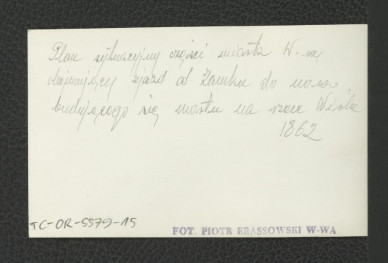 Plan sytuacyjny części miasta W-wy
obejmujący zjazd od Zamku do nowo
budującego się mostu na rzece Wiśle
1862
TC-OR-5579-15
FOT. PIOTR BRASSOWSKI W-WA